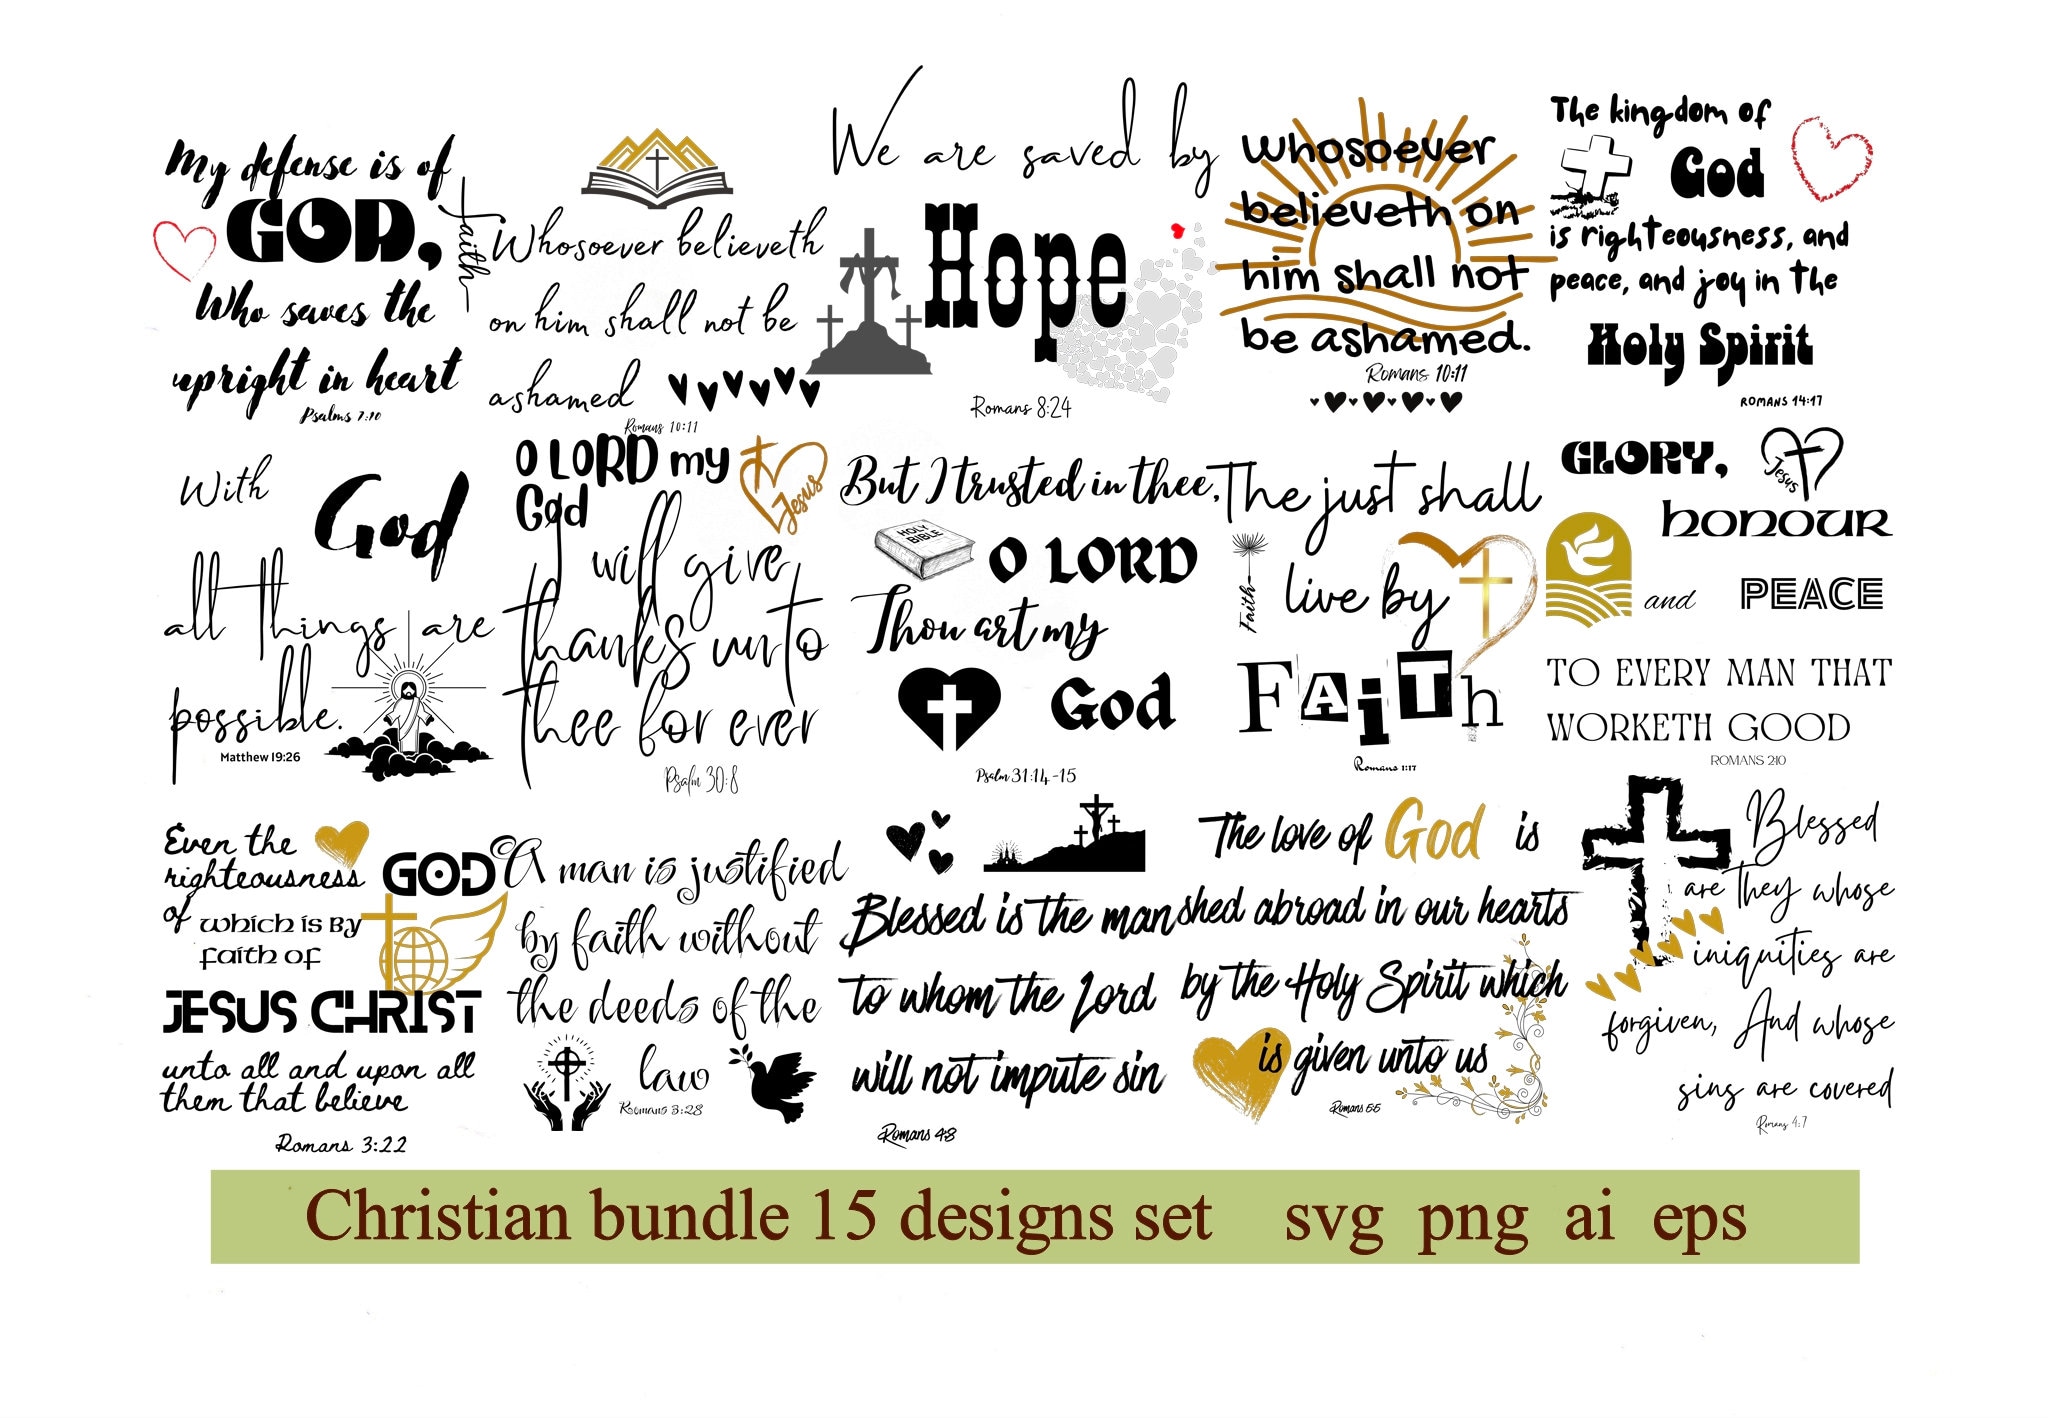 My defense is of
GOD,
Who saves the
upright in heart
Psalms 7:10
Faith
Whosoever believeth
on him shall not be
ashamed
Romans 10:11
We are saved by
Hope
Romans 8:24
Whosoever
believeth on
him shall not
be ashamed.
Romans 10:11
The kingdom of
God
is righteousness, and
peace, and joy in the
Holy Spirit
ROMANS 14:17
With
God
all things are
possible.
Matthew 19:26
O LORD my
God
I will give
thanks unto
thee for ever
Psalm 30:8
Jesus
But I trusted in thee,
HOLY
BIBLE
O LORD
Thou art my
God
Psalm 31:14-15
The just shall
live by
Faith
FAiTh
Romans 1:17
GLORY,
Jesus
HONOUR
and PEACE
TO EVERY MAN THAT
WORKETH GOOD
ROMANS 2:10
Even the
righteousness
of GOD
which is By
faith of
JESUS CHRIST
unto all and upon all
them that believe
Romans 3:22
A man is justified
by faith without
the deeds of the
law
Romans 3:28
Blessed is the man
to whom the Lord
will not impute sin
Romans 4:8
The love of God is
shed abroad in our hearts
by the Holy Spirit which
is given unto us
Romans 5:5
Blessed
are they whose
iniquities are
forgiven, And whose
sins are covered
Romans 4:7
Christian bundle 15 designs set svg png ai eps